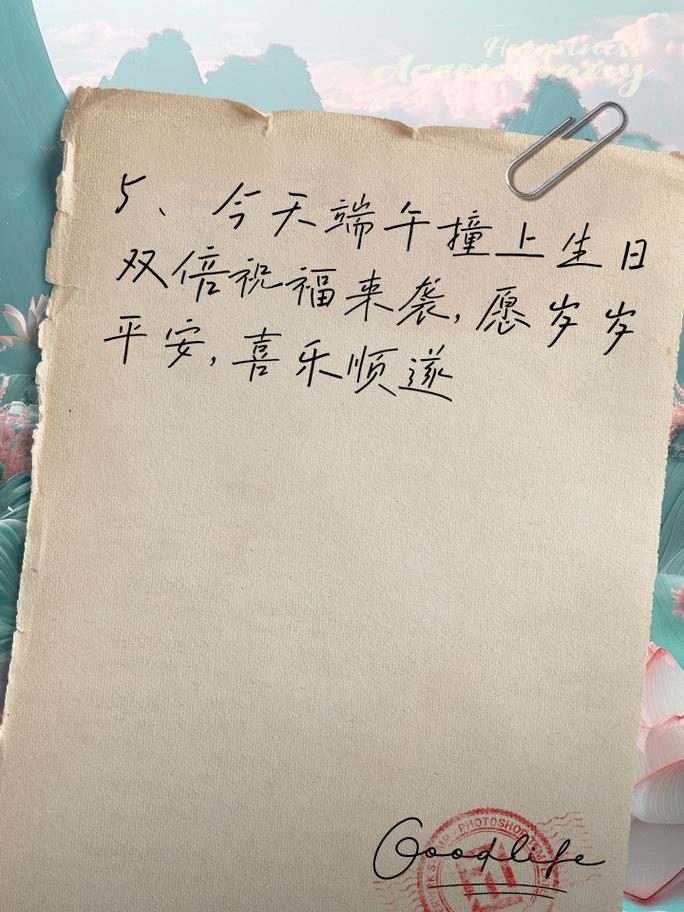 Happiness
5、今天端午撞上生日
双倍祝福来袭,愿岁岁
平安,喜乐顺遂
PHOTOSHOP
Goodlife